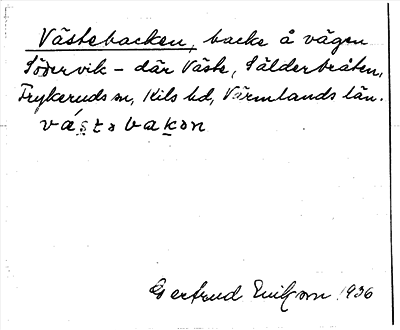 Västebacken, backe å vägen
Södervik – där Väste, Sälderbråten,
Frykeruds sn, Kils hd, Värmlands län.
vá̱stəbakən
Gertrud Erikson 1936